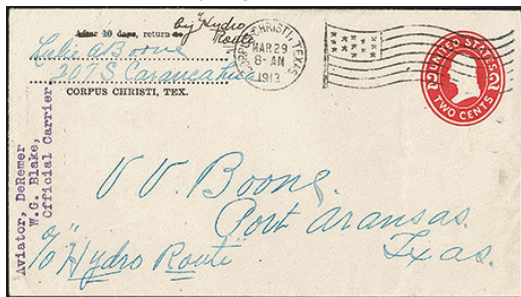 After 10 days, return to
by Hydro
Route
Lulie A Boone
207 S Carancahua
CORPUS CHRISTI, TEX.
CORPUS CHRISTI, TEXAS
MAR 29
8-AM
1913
UNITED STATES
2 2
TWO CENTS
Aviator, DeRemer
W.G. Blake,
Official Carrier
V. V. Boone
Port Aransas.
Texas.
c/o "Hydro Route"